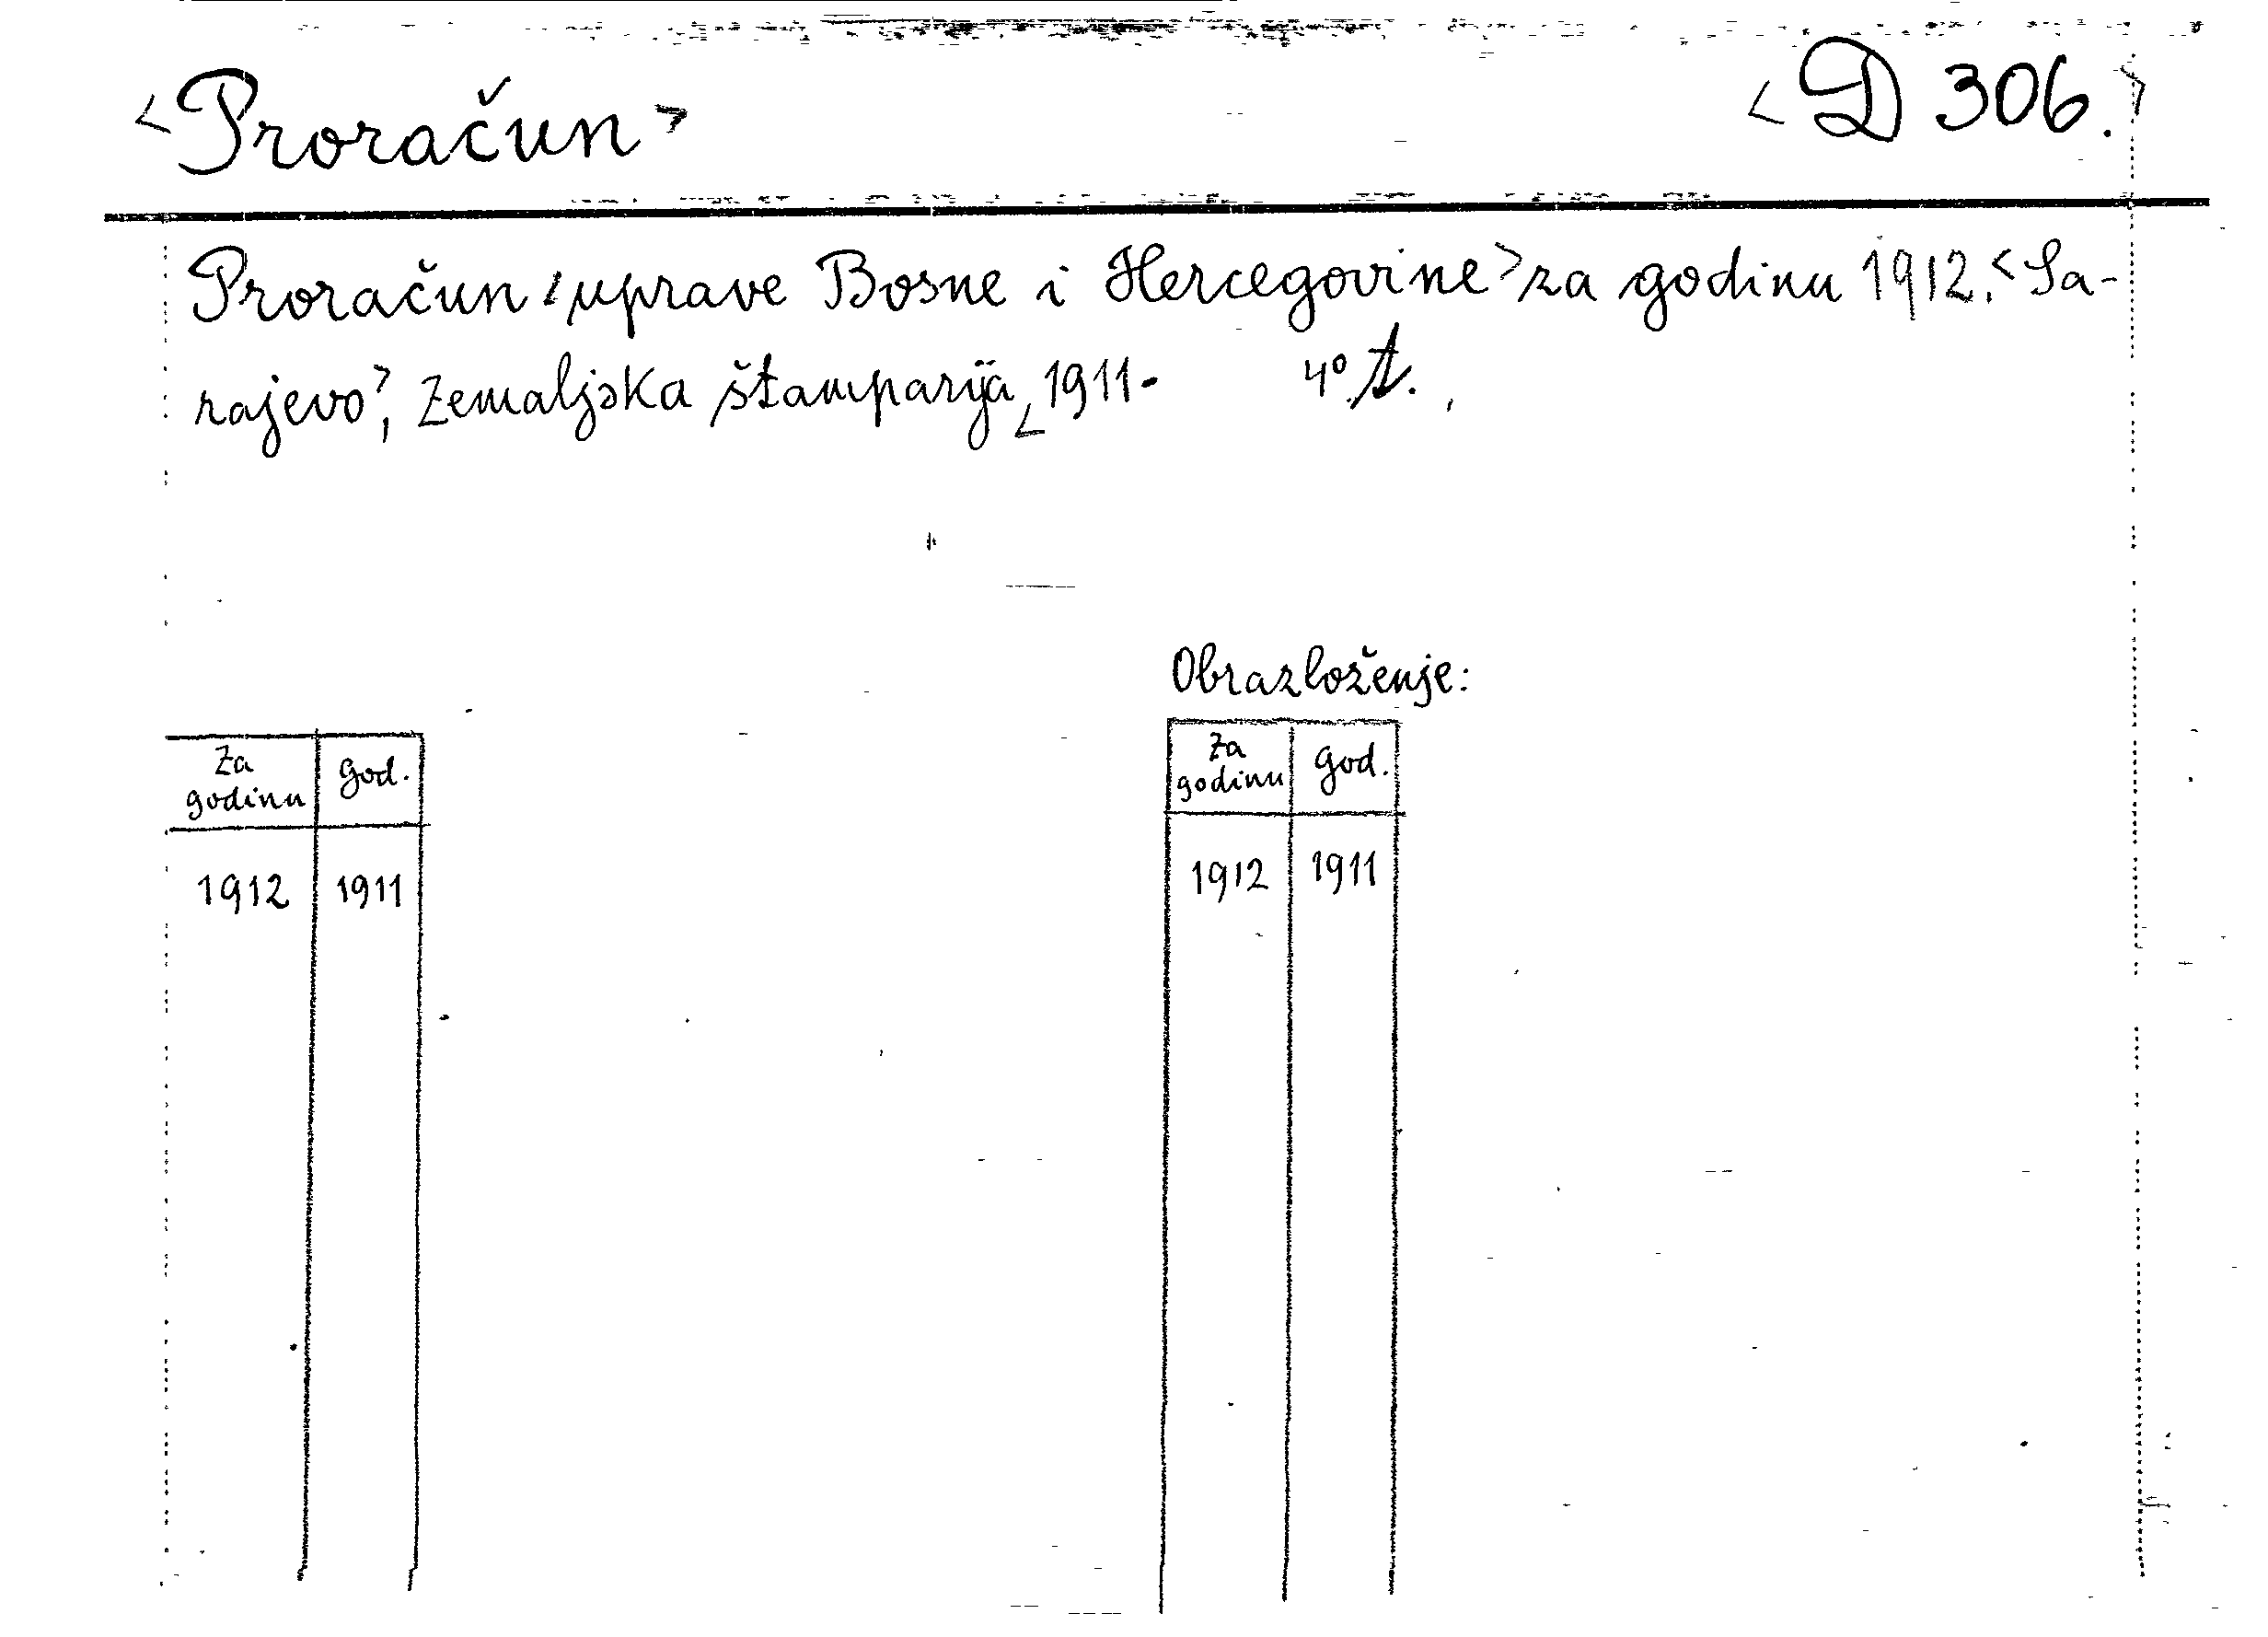 <Proračun>
<D 306.>
Proračun uprave Bosne i Hercegovine> za godinu 1912.<Sa-
rajevo>, Zemaljska štamparija, <1911- 4° t.
Obrazloženje:
Za godinu God.
1912 1911
Za godinu God.
1912 1911